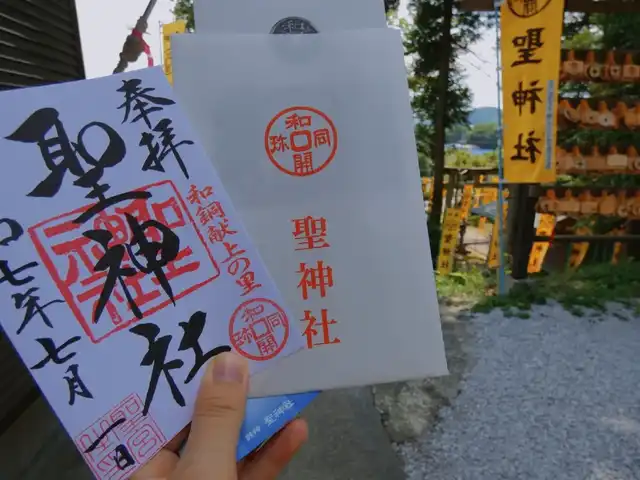 奉拝
和銅献上の里
聖神社
七年七月一日
和同開珎
和同開珎
聖神社
聖神社
聖神社